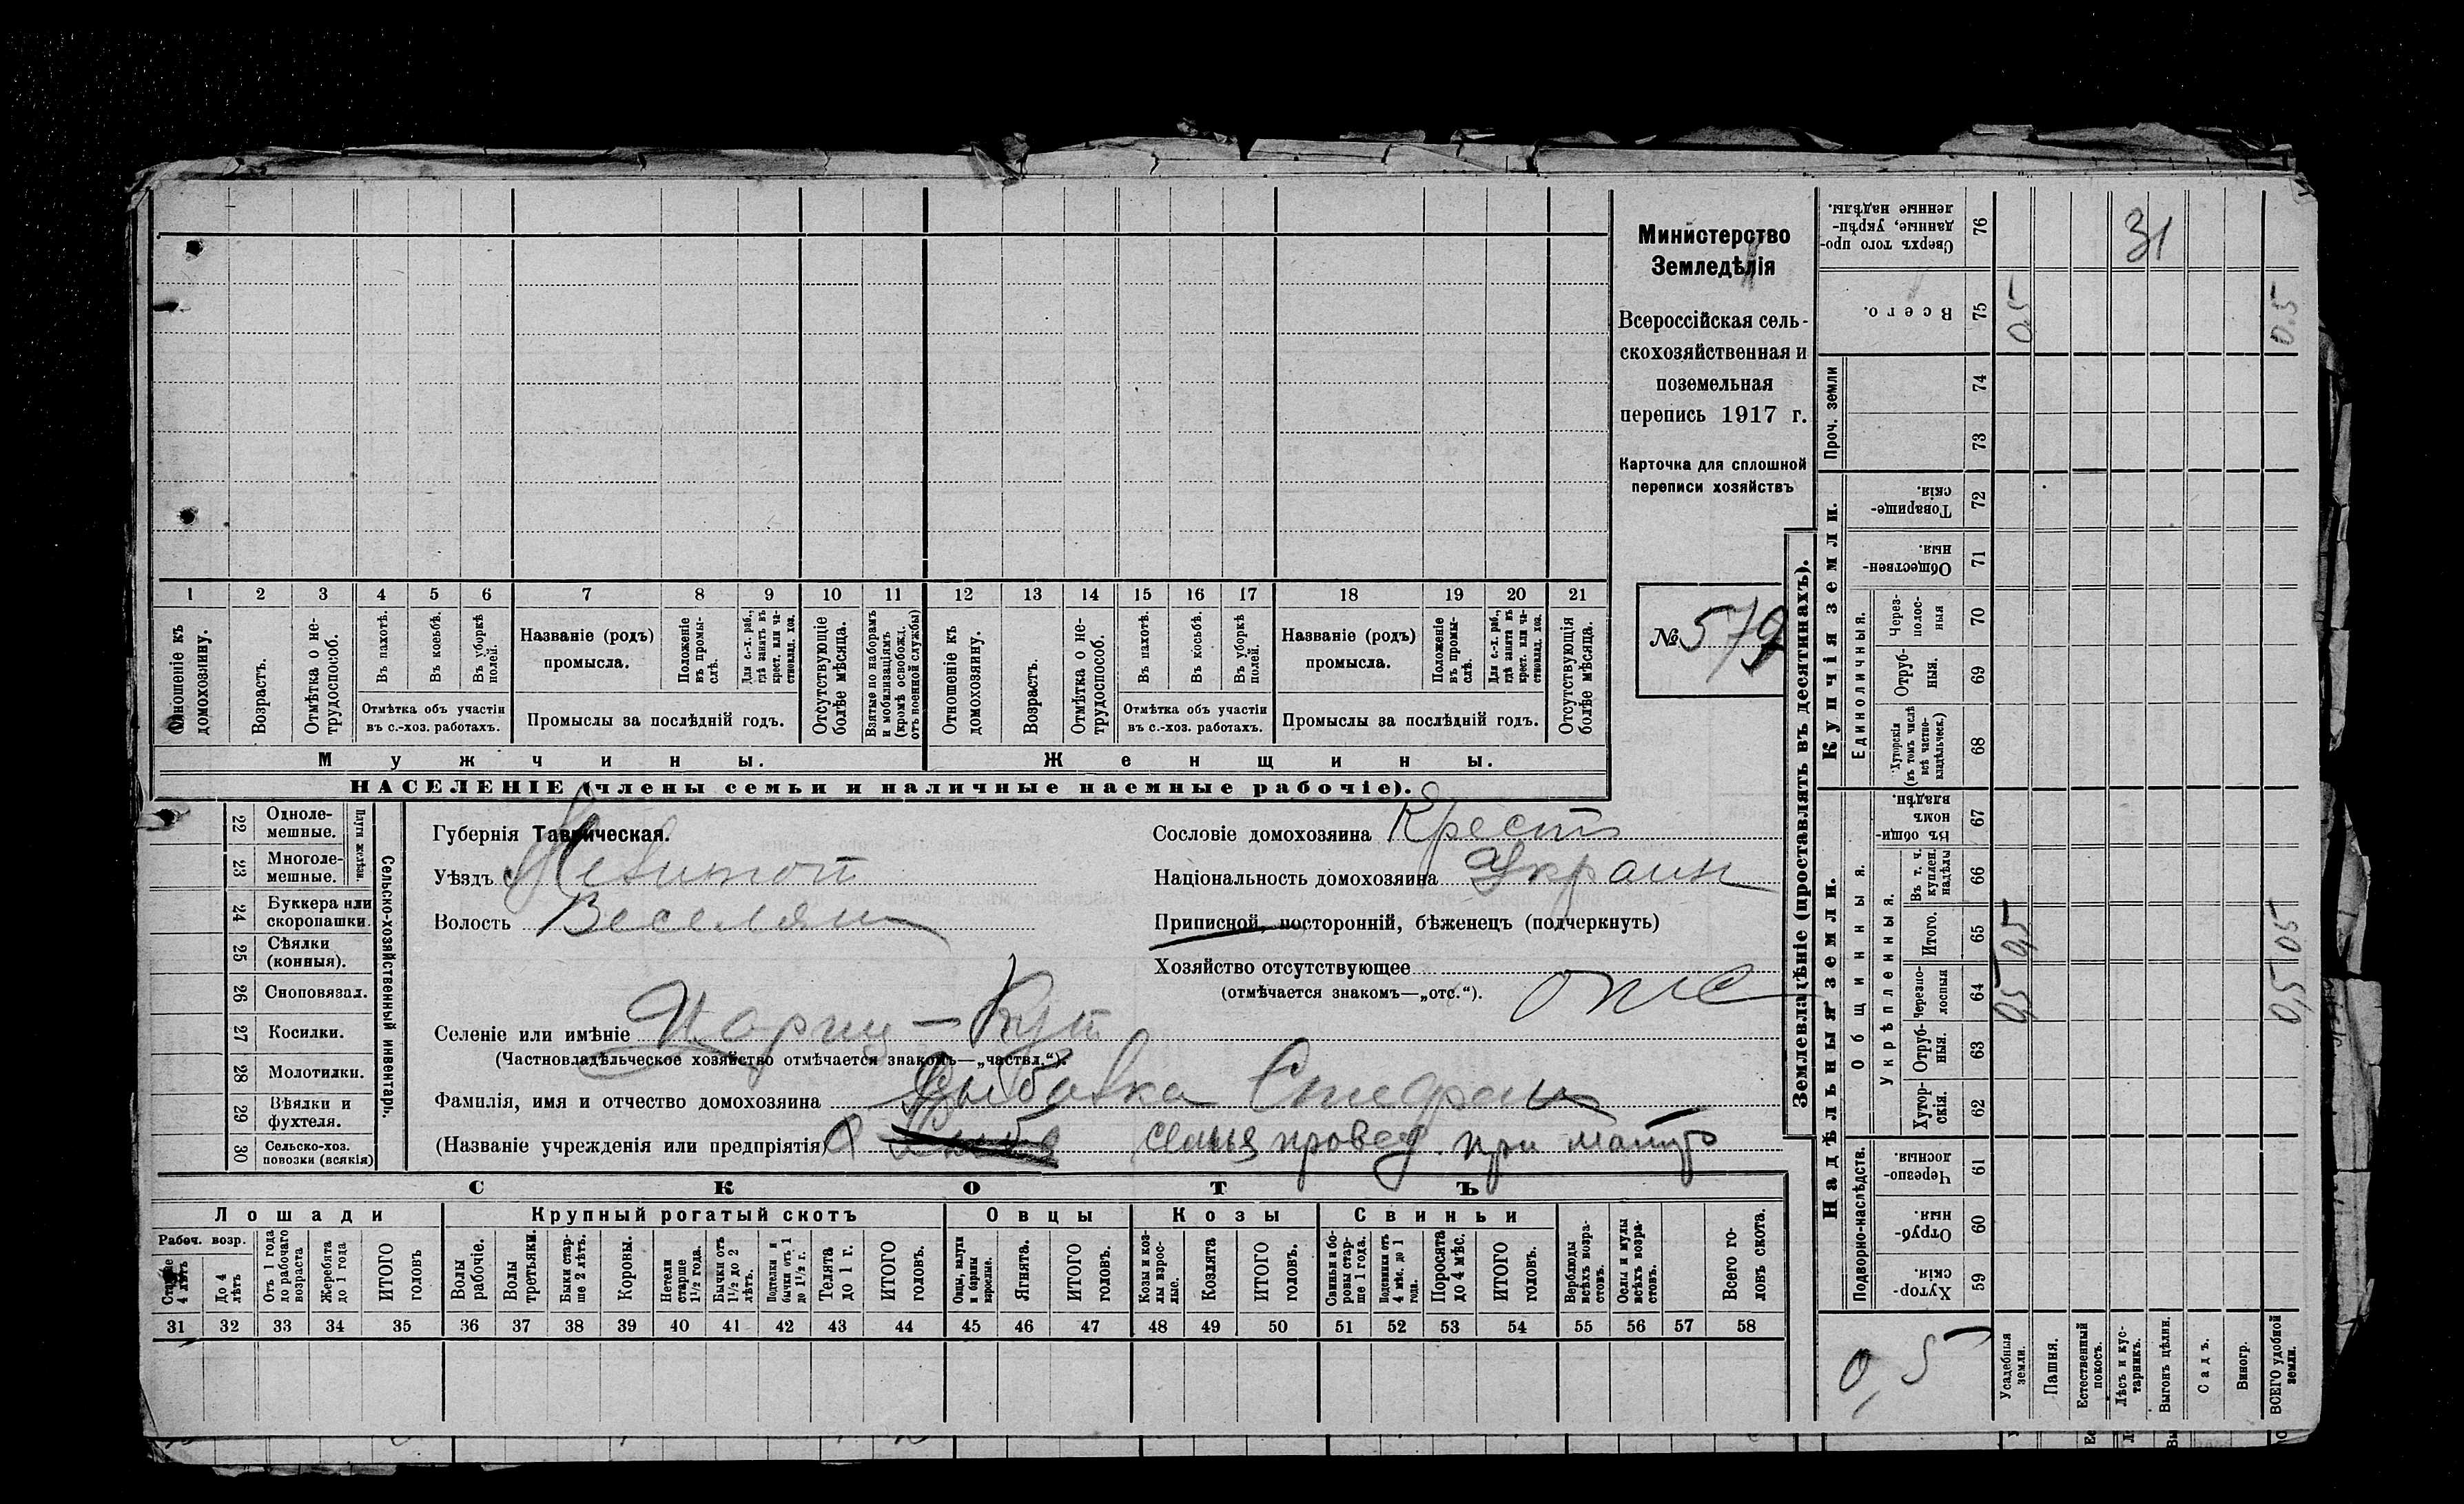 Министерство
Земледѣлія
Всероссійская сель-
скохозяйственная и
поземельная
перепись 1917 г.
Карточка для сплошной
переписи хозяйствъ
№ 579
1 2 3 4 5 6 7 8 9 10 11 12 13 14 15 16 17 18 19 20 21
Отношеніе къ домохозяину.
Возрастъ.
Отмѣтка о не-трудоспособ.
Въ пахотѣ.
Въ косьбѣ.
Въ уборкѣ полей.
Отмѣтка объ участіи въ с.-хоз. работахъ.
Названіе (родъ) промысла.
Положеніе въ промы-слѣ.
Для с.-х. раб., гдѣ занятъ въ крест. или ча-стновлад. хоз.
Промыслы за послѣдній годъ.
Отсутствующіе болѣе мѣсяца.
Взятые по наборамъ и мобилизаціямъ (кромѣ освобожд. отъ военной службы)
Отношеніе къ домохозяину.
Возрастъ.
Отмѣтка о не-трудоспособ.
Въ пахотѣ.
Въ косьбѣ.
Въ уборкѣ полей.
Отмѣтка объ участіи въ с.-хоз. работахъ.
Названіе (родъ) промысла.
Положеніе въ промы-слѣ.
Для с.-х. раб., гдѣ занята въ крест. или ча-стновлад. хоз.
Промыслы за послѣдній годъ.
Отсутствующія болѣе мѣсяца.
Мужчины.
Женщины.
НАСЕЛЕНІЕ (члены семьи и наличные наемные рабочіе).
22 Одноле-мешные.
23 Многоле-мешные.
Плуги желѣзн.
24 Буккера или скоропашки.
25 Сѣялки (конныя).
26 Сноповязал.
27 Косилки.
28 Молотилки.
29 Вѣялки и фухтеля.
30 Сельско-хоз. повозки (всякія)
Сельско-хозяйственный инвентарь.
Губернія Таврическая.
Уѣздъ Мелитоп
Волость Веселян
Селеніе или имѣніе
(Частновладѣльческое хозяйство отмѣчается знакомъ—„частвл.“).
Фамилія, имя и отчество домохозяина Степан
(Названіе учрежденія или предпріятія) семья провед. при
Сословіе домохозяина Крест
Національность домохозяина Украин
Приписной, посторонній, бѣженецъ (подчеркнуть)
Хозяйство отсутствующее отс
(отмѣчается знакомъ—„отс.“).
СКОТЪ
Лошади
Крупный рогатый скотъ
Овцы
Козы
Свиньи
Рабоч. возр.
Старше 4 лѣтъ
До 4 лѣтъ
Отъ 1 года до рабочаго возраста
Жеребята до 1 года
ИТОГО головъ
Волы рабочіе.
Волы третьяки.
Быки стар-ше 2 лѣтъ.
Коровы.
Нетели старше 1½ года.
Бычки отъ 1½ до 2 лѣтъ.
Подтелки и бычки отъ 1 до 1½ г.
Телята до 1 г.
ИТОГО головъ.
Овцы, валухи и бараны взрослые.
Ягнята.
ИТОГО головъ.
Козы и коз-лы взрос-лые.
Козлята
ИТОГО головъ.
Свиньи и бо-ровы стар-ше 1 года.
Подсвинки отъ 4 мѣс. до 1 года.
Поросята до 4 мѣс.
ИТОГО головъ.
Верблюды всѣхъ возра-стовъ.
Ослы и мулы всѣхъ возра-стовъ.
Всего го-ловъ скота.
31 32 33 34 35 36 37 38 39 40 41 42 43 44 45 46 47 48 49 50 51 52 53 54 55 56 57 58
Землевладѣніе (проставлять въ десятинахъ).
Купчія земли.
Надѣльныя земли.
Сверхъ того про-данные, укрѣп-ленные надѣлы. 76
31
Всего. 75
0,5
0.5
Проч. земли
74
73
Товарище-скія. 72
Обществен-ныя. 71
Единоличныя.
Через-полос-ныя 70
Отруб-ныя. 69
Хуторскія (въ томъ числѣ всѣ частно-владѣльческ.) 68
Общинныя.
Въ общи-номъ владѣн. 67
Укрѣпленныя.
Въ т. ч. куплен. надѣлы 66
Итого. 65
0,5
05
Черезпо-лосныя 64
0,5
0,5
Отруб-ныя. 63
Хутор-скія. 62
Подворно-наслѣдств.
Черезпо-лосныя. 61
Отруб-ныя. 60
Хутор-скія. 59
0,5
Усадебныя земли.
Пашня.
Естественный покосъ.
Лѣсъ и кус-тарникъ.
Выгонъ цѣлин.
Садъ.
Виногр.
ВСЕГО удобной земли.